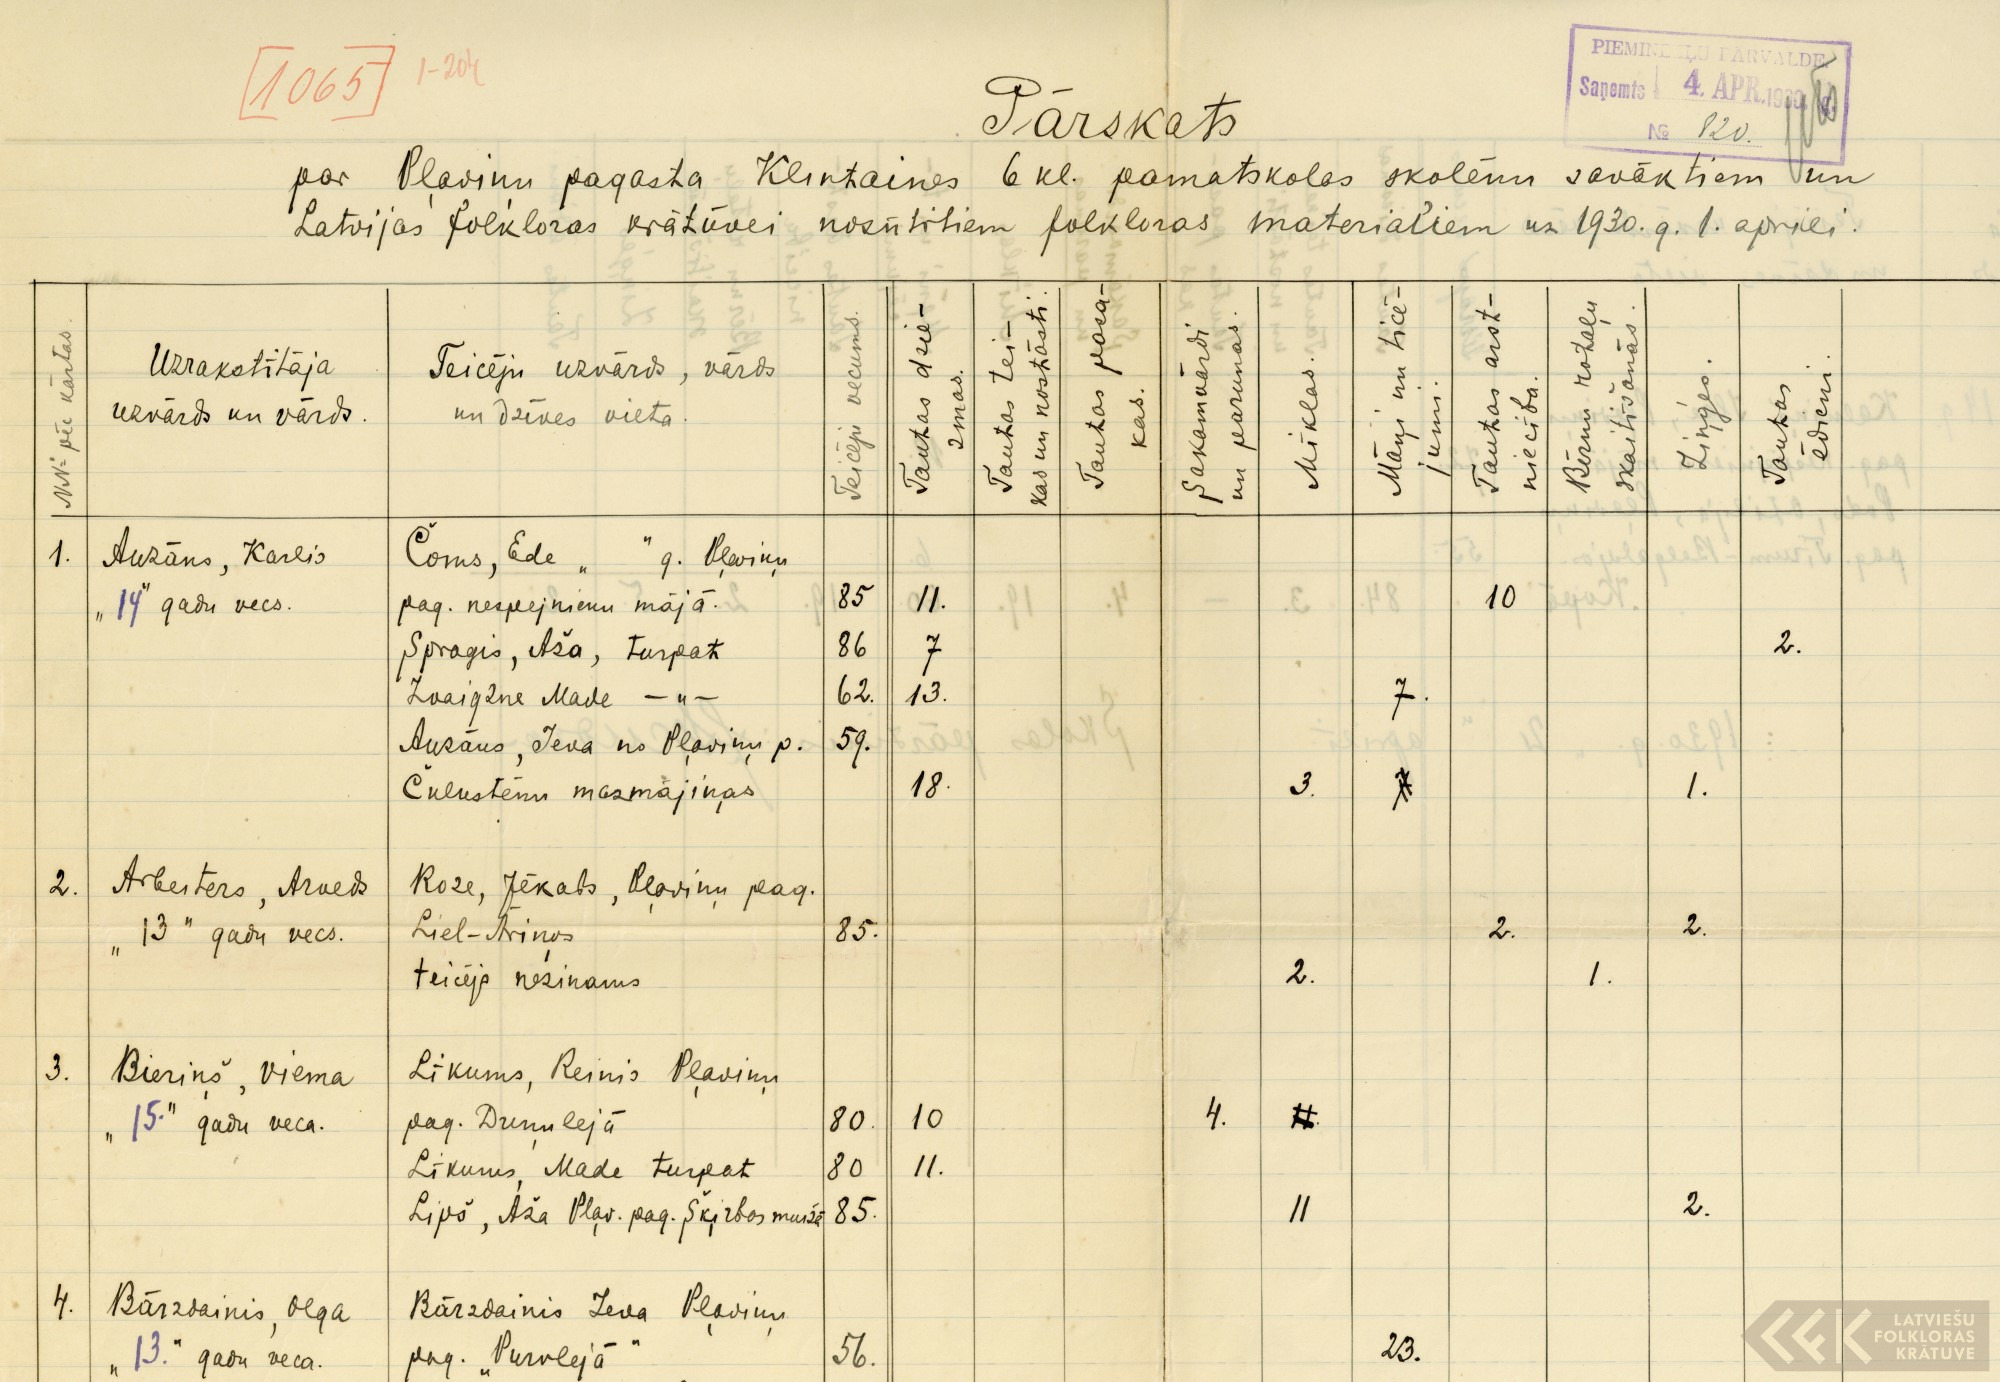 [1065] 1-204
PIEMINEKĻU PĀRVALDE.
Saņemts 4. APR. 1930
№ 120.
Pārskats
par Pļaviņu pagasta Klintaines 6 kl. pamatskolas skolēnu savāktiem un
Latvijas folkloras krātūvei nosūtītiem folkloras materiāliem uz 1930. g. 1. aprili.
№№ pēc kārtas.
Uzrakstītāja
uzvārds un vārds.
Teicēju uzvārds, vārds
un dzīves vieta.
Teicēju vecums.
Tautas dzie-
smas.
Tautas tei-
kas un nostāsti.
Tautas pasa-
kas.
Sakamvārdi
un parunas.
Mīklas.
Māņi un ticē-
jumi.
Tautas ārst-
niecība.
Bērnu rotaļu
skaitīšanās.
Ziņģes.
Tautas
ēdieni.
1. Auzāns, Karlis Čoms, Ede „ " g. Pļaviņu
„14" gadu vecs. pag. nespejnieku mājā. 85 11. 10
Spragis, Aža, turpat 86 7 2.
Zvaigzne Made —"— 62. 13. 7.
Auzāns, Ieva no Pļaviņu p. 59.
Čulustēnu mazmājiņas 18. 3. 1.
2. Arbeiters, Arveds Roze, Jēkabs, Pļaviņu pag.
„13" gadu vecs. Liel-Āriņos 85. 2. 2.
teicējs nezinams 2. 1.
3. Bieriņš, Vilma Likums, Reinis Pļaviņu
„15." gadu veca. pag. Druņulejā 80. 10 4.
Likums, Made turpat 80 11.
Lipš, Aža Pļav. pag. Šķirbas muižā 85. 11 2.
4. Bārzdainis, Olga Bārzdainis Ieva Pļaviņu
„13." gadu veca. pag. „Purvlejā" 56. 23.
LATVIEŠU
FOLKLORAS
KRĀTUVE